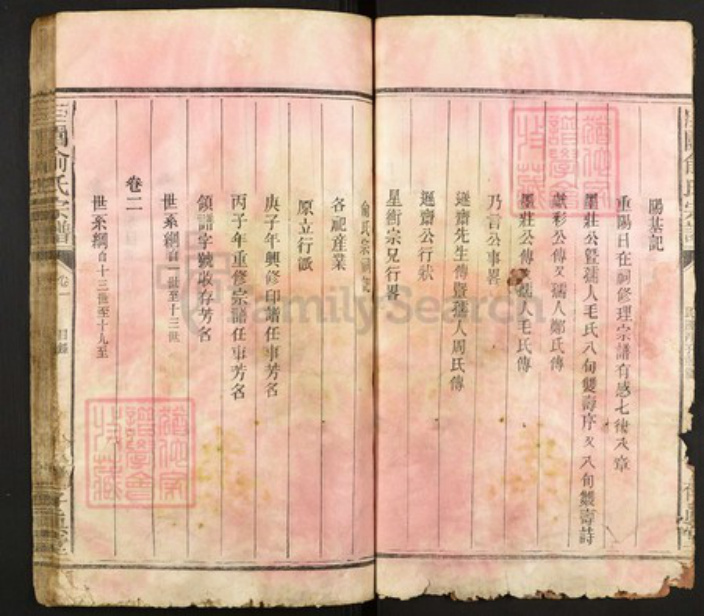 陽基記
重陽日在祠修理宗譜有感七律八章
墨莊公暨孺人毛氏八旬雙壽序又八旬雙壽詩
獻彩公傳又孺人鄭氏傳
墨莊公傳又孺人毛氏傳
乃言公事畧
遜齋先生傳暨孺人周氏傳
遜齋公行狀
星衡宗兄行畧
俞氏宗祠記
各祀產業
原立行徽
庚子年興修印譜任事芳名
丙子年重修宗譜任事芳名
領譜字號收存芳名
世系綱自一世至十三世
卷二
世系綱自十三世至十九至
俞氏宗譜
卷一
目錄
FamilySearch